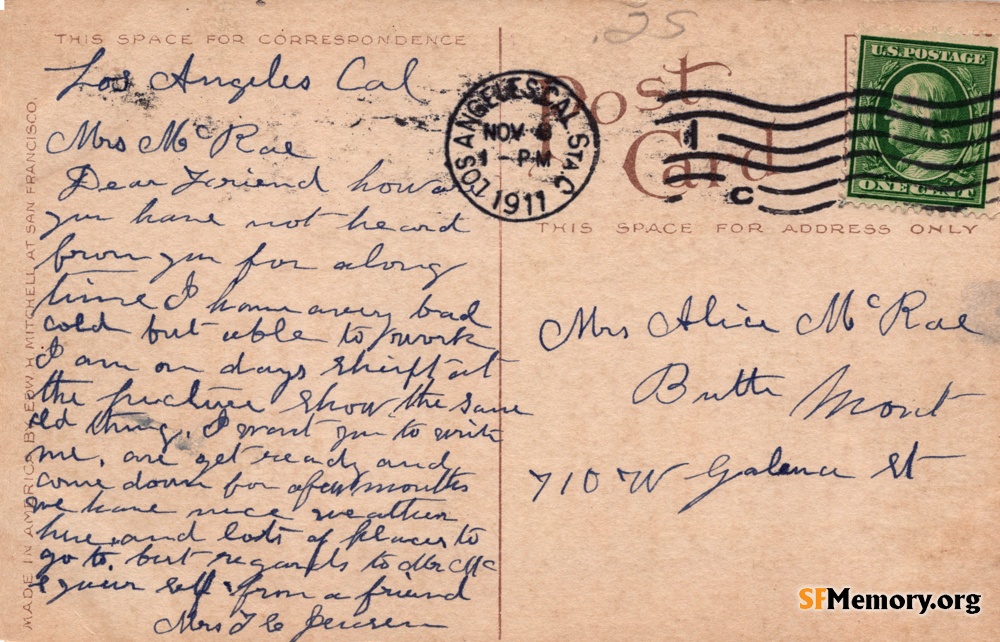 .25
THIS SPACE FOR CORRESPONDENCE
Los Angeles Cal
Mrs McRae
Dear Friend how a
you have not heard
from you for along
time I have avery bad
cold but able to work
I am on days shift at
the picture show the same
old thing. I want you to write
me, are get ready and
come down for afew months
we have nice weather
here, and lots of places to
go to, best regards to Mr Mc
& your self from a friend
Mrs
MADE IN AMERICA BY EDW. H. MITCHELL AT SAN FRANCISCO.
Post
Card
LOS ANGELES, CAL. STA. C
NOV
1 - PM
1911
1
C
U.S. POSTAGE
ONE CENT
THIS SPACE FOR ADDRESS ONLY
Mrs Alice McRae
Butte Mont
710 W Galena St
SFMemory.org